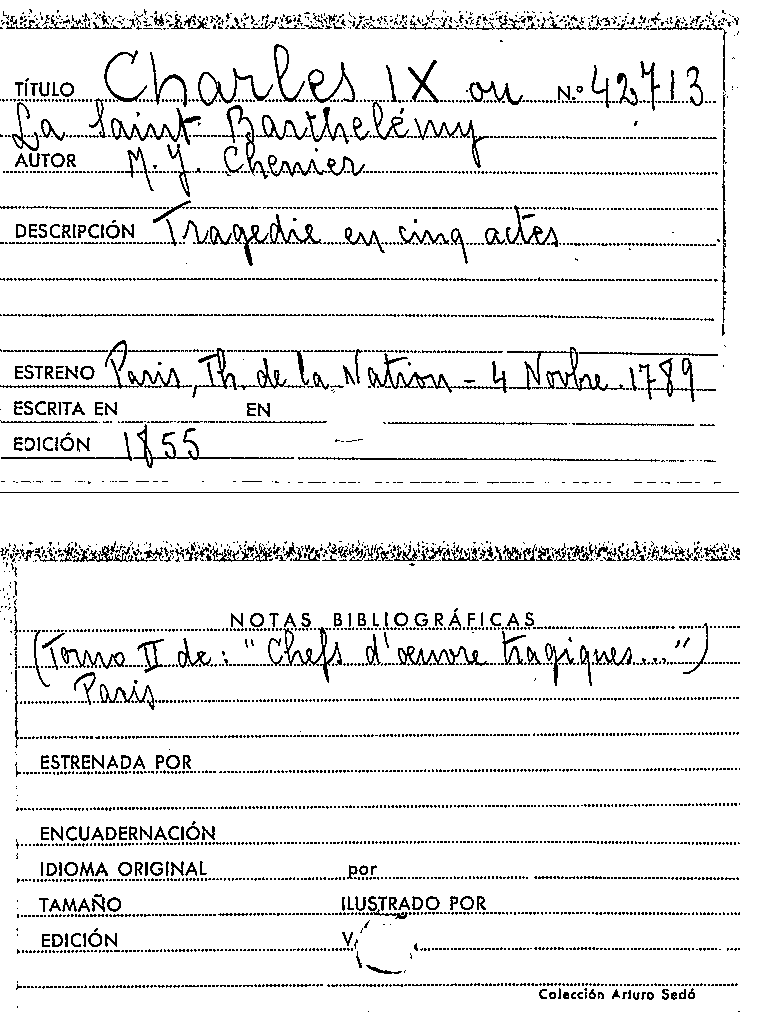 TÍTULO Charles IX ou N.º 42713
La Saint Barthelémy
AUTOR M. J. Chenier
DESCRIPCIÓN Tragedie en cinq actes
ESTRENO Paris, Th. de la Nation - 4 Novbre. 1789
ESCRITA EN EN
EDICIÓN 1855 —
NOTAS BIBLIOGRÁFICAS
(Tomo II de: "Chefs d'oeuvre tragiques...")
Paris
ESTRENADA POR
ENCUADERNACIÓN
IDIOMA ORIGINAL por
TAMAÑO ILUSTRADO POR
EDICIÓN V.
Colección Arturo Sedó